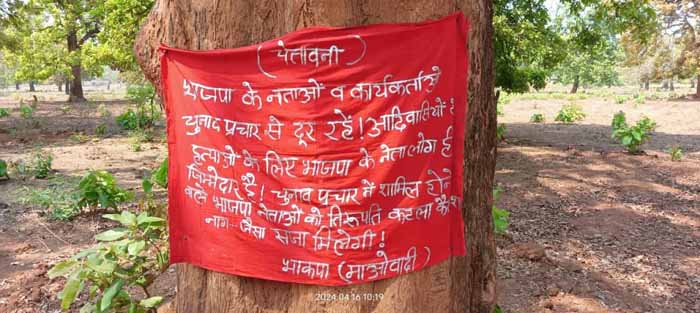 ( चेतावनी )
भाजपा के नेताओं व कार्यकर्ताओं
चुनाव प्रचार से दूर रहें! आदिवासियों
हत्याओं के लिए भाजपा के नेता लोग ही
जिम्मेदार है! चुनाव प्रचार में शामिल होने
वाले भाजपा नेताओं को तिरूपति कटला
नाग - जैसा सजा मिलेगी!
भाकपा (माओवादी)
2024 04 16 10:19